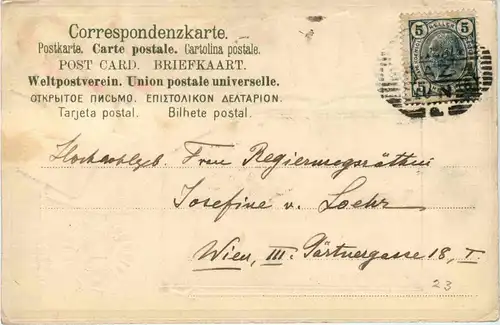 Correspondenzkarte.
Postkarte. Carte postale. Cartolina postale.
POST CARD. BRIEFKAART.
Weltpostverein. Union postale universelle.
ОТКРЫТОЕ ПИСЬМО. ΕΠΙΣΤΟΛΙΚΟΝ ΔΕΛΤΑΡΙΟΝ.
Tarjeta postal. Bilhete postal.
5 5
Hochwohlgeb. Frau Regierungsräthin
Josefine v. Loehr
Wien, III. Gärtnergasse 18, I.
23